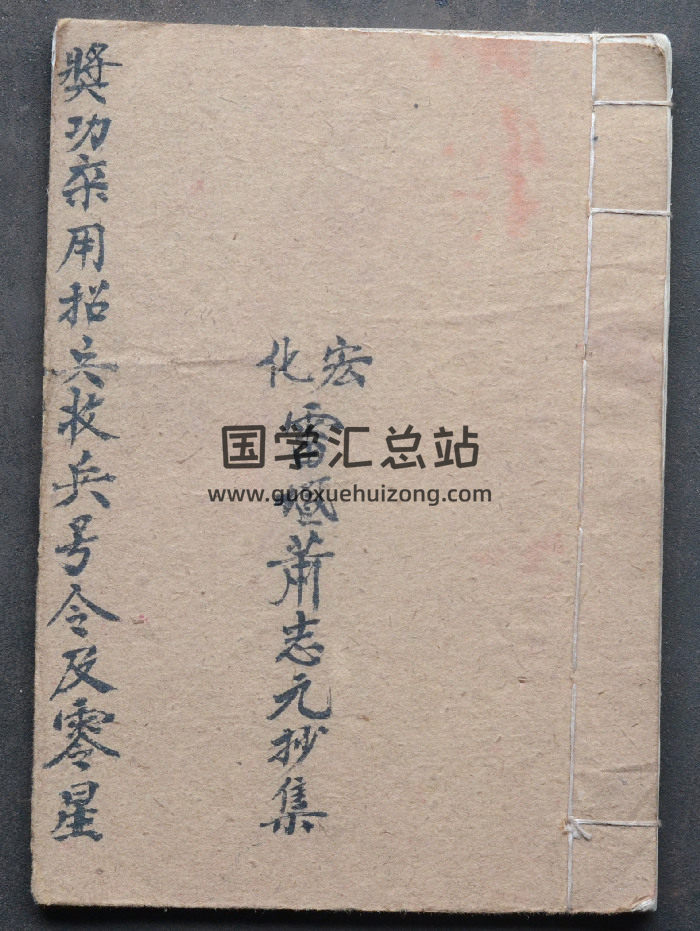 宏化
雷壇萧志元抄集
獎功用招兵收兵号令及零星
国学汇总站
www.guoxuehuizong.com